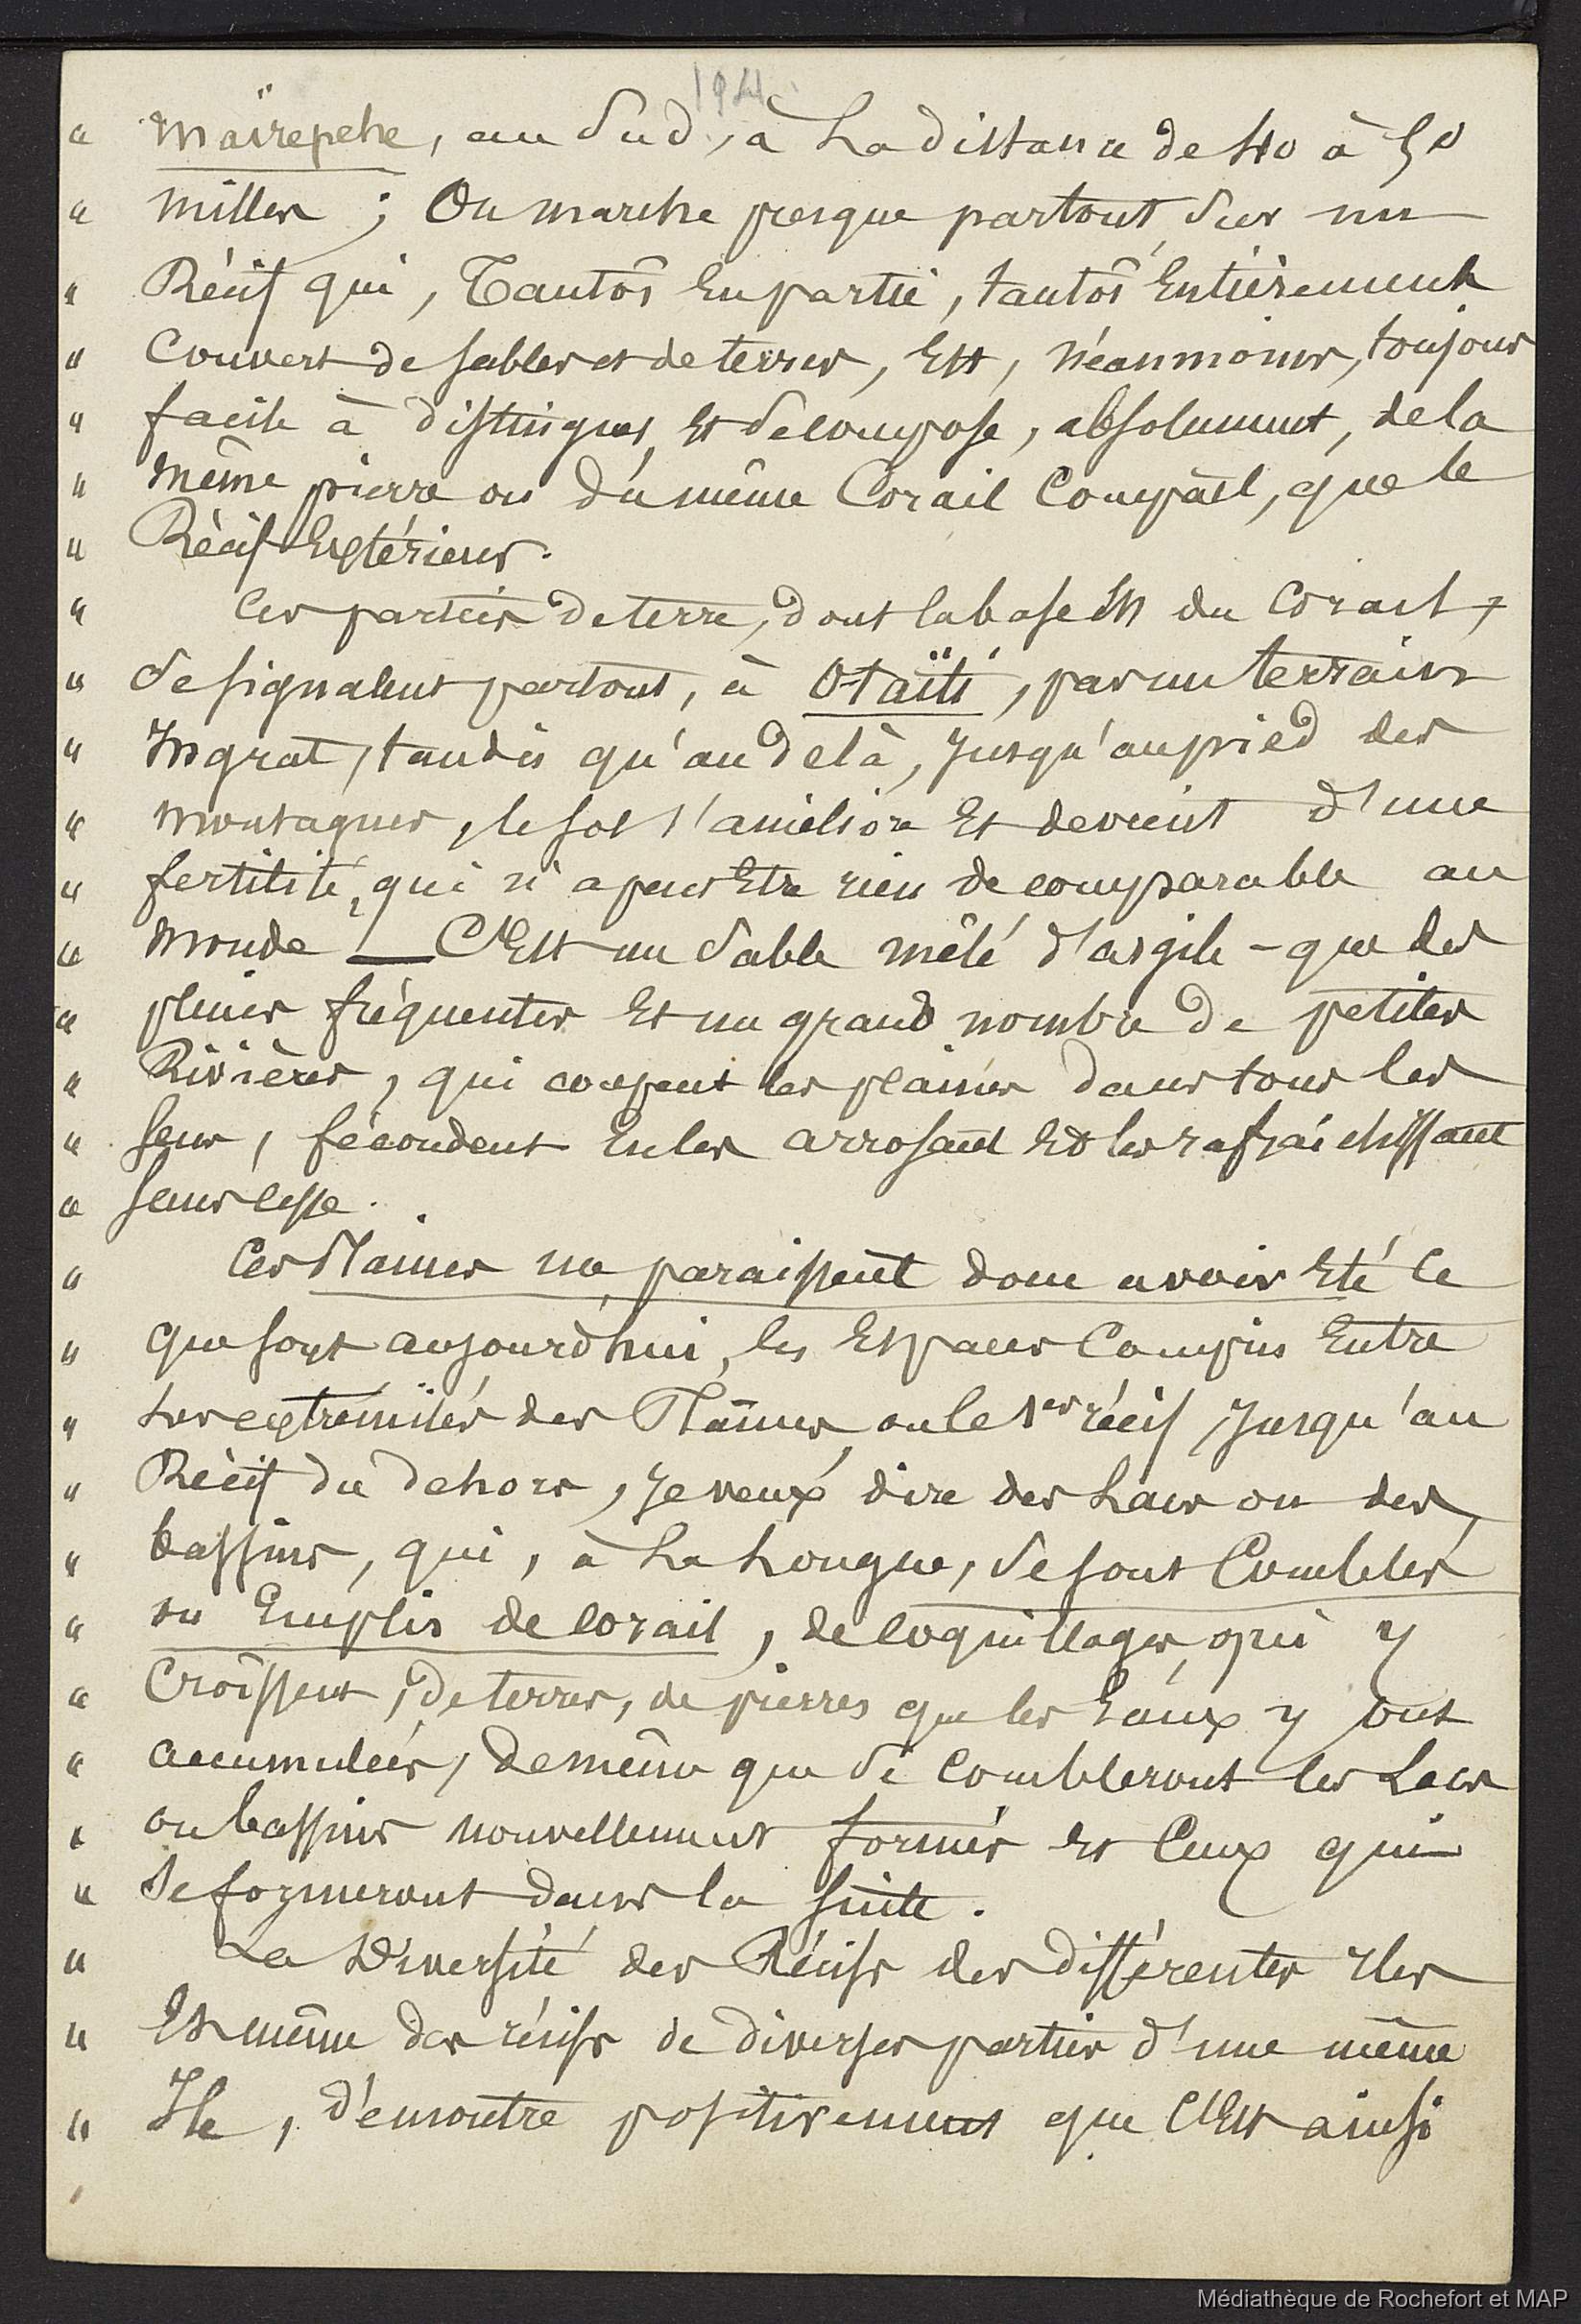 194
" Maïrepehe, au Sud, à La distance de 40 à 50
" milles ; On marche presque partout sur un
" Récif qui, Tantôt En partie, tantôt Entièrement
" Couvert de sables et de terres, Est, Néanmoins, toujours
" facile à distinguer, Et se compose, absolument, de la
" Même pierre ou du même Corail Compact, que le
" Récif Extérieur.
" Ces parties de terre, dont la base Est du Corail,
" se signalent partout, à O-taïti, par un terrain
" Ingrat, tandis qu'au delà, Jusqu'au pied des
" montagnes, le sol s'améliore Et devient d'une
" fertilité, qui n'a peut Etre rien de comparable au
" Monde — C'Est un Sable mêlé d'argile - que des
" pluies fréquentes Et un grand nombre de petites
" Rivières, qui coupent les plaines dans tous les
" sens, fécondent En les arrosant Et les rafraichissant
" sans cesse.
" Ces Plaines me paraissent donc avoir Eté ce
" que sont aujourd'hui, les Espaces Compris Entre
" Les extrémités des Plaines ou le 1er récif Jusqu'au
" Récif du dehors, Je veux dire des Lacs ou des
" bassins, qui, à La Longue, se sont Comblés
" ou Emplis de corail, de coquillages, qui y
" Croissent, de terres, de pierres que les Eaux y ont
" accumulées, de même que se Combleront les Lacs
" ou bassins nouvellement formés Et Ceux qui
" Se formeront dans la suite.
" La Diversité des Récifs des différentes Iles
" Et même des récifs de diverses parties d'une même
" Ile, démontre positivement que C'Est ainsi
Médiathèque de Rochefort et MAP